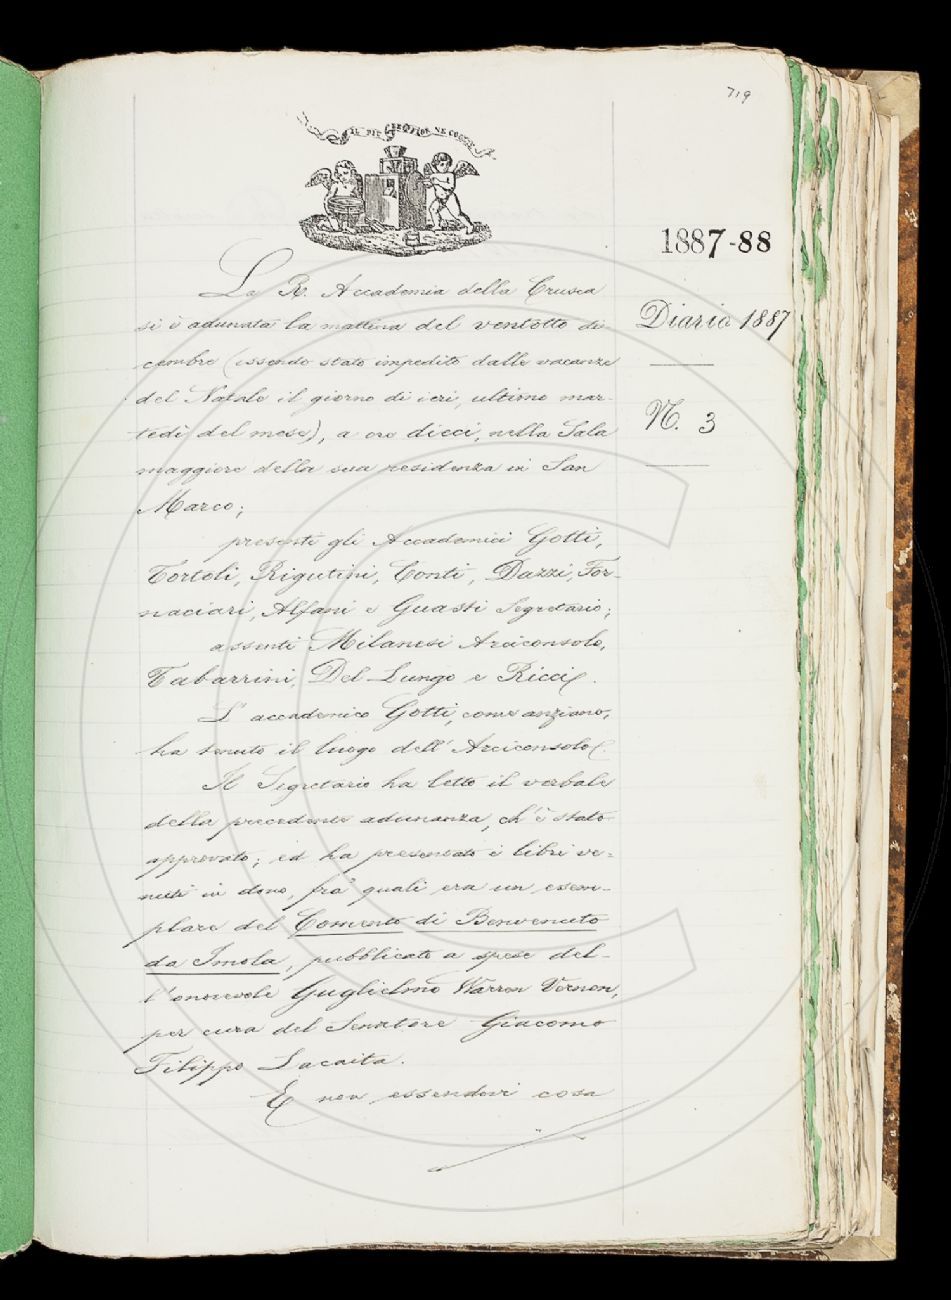 719
IL PIÙ BEL FIOR NE COGLIE
1887-88
Diario 1887
N. 3
La R. Accademia della Crusca
si è adunata la mattina del ventotto di-
cembre (essendo stato impedito dalle vacanze
del Natale il giorno di ieri, ultimo mar-
tedì del mese), a ore dieci, nella Sala
maggiore della sua residenza in San
Marco;
presenti gli Accademici Gotti,
Tortoli, Rigutini, Conti, Dazzi, For-
naciari, Alfani e Guasti Segretario;
assenti Milanesi Arciconsolo,
Tabarrini, Del Lungo e Ricci.
L'accademico Gotti, come anziano,
ha tenuto il luogo dell'Arciconsolo.
Il Segretario ha letto il verbale
della precedente adunanza, ch'è stato
approvato; ed ha presentato i libri ve-
nuti in dono, fra' quali era un esem-
plare del Comento di Benvenuto
da Imola, pubblicato a spese del-
l'onorevole Guglielmo Warren Vernon,
per cura del Senatore Giacomo
Filippo Lacaita.
E non essendovi cosa